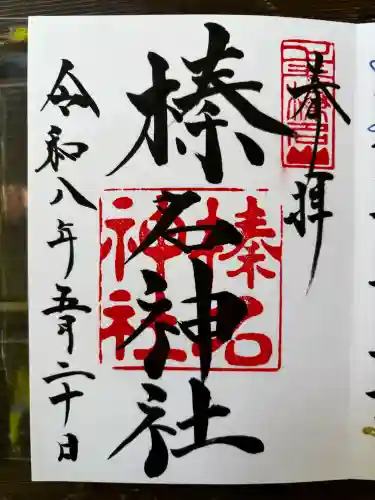 奉拝
榛名神社
榛名神社
令和八年五月二十日